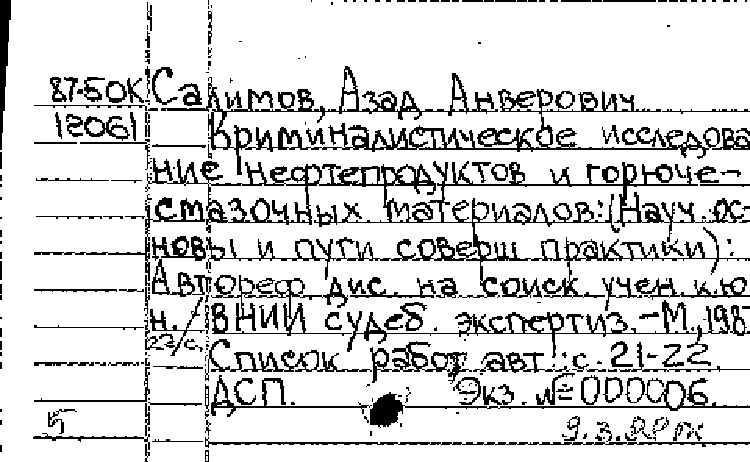 87-50К Салимов, Азад Анверович
12061 Криминалистическое исследова
ние нефтепродуктов и горюче-
смазочных материалов: (Науч. ос-
новы и пути соверш. практики):
Автореф. дис. на соиск. учен. к.ю
н. / ВНИИ судеб. экспертиз. - М., 198
22/с. Список работ авт.: с. 21-22.
ДСП. Экз. №000006.
5